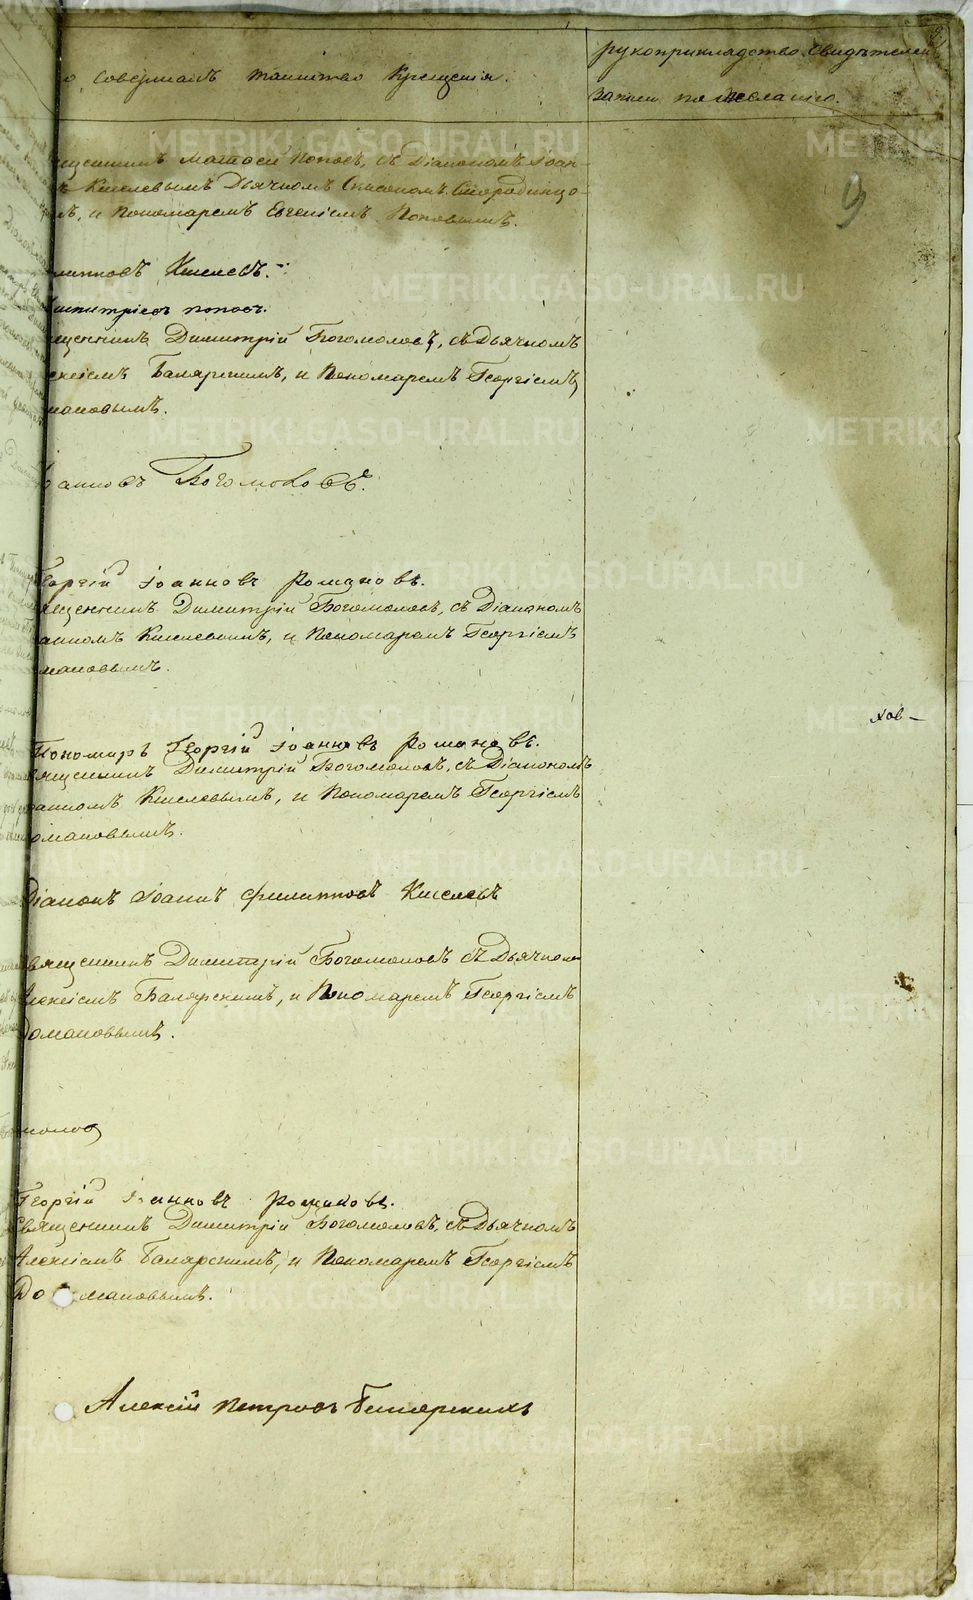 о совершалъ таинство крещенія.
рукоприкладство свидѣтелей
записи по желанію.
9
ященникъ Матѳей Поповъ, съ Діакономъ Іоан-
Киселевымъ Дьячкомъ
и Пономаремъ Евгеніемъ Поповымъ.
липповъ Киселевъ.
имитріевъ поповъ.
ященникъ Димитрій Богомоловъ, съ Дьячкомъ
ексіемъ Балярскимъ, и Пономаремъ Георгіемъ
мановымъ.
оанновъ Богомоловъ.
еоргій Іоанновъ Романовъ.
ященникъ Димитрій Богомоловъ, съ Діакономъ
анномъ Киселевымъ, и Пономаремъ Георгіемъ
мановымъ.
хов-
Пономарь Георгій Іоанновъ Романовъ.
вященникъ Димитрій Богомоловъ, съ Діакономъ
оанномъ Киселевымъ, и Пономаремъ Георгіемъ
омановымъ.
Діаконъ Іоаннъ Филипповъ Киселевъ
вященникъ Димитрій Богомоловъ съ Дьячком
Алексіемъ Балярскимъ, и Пономаремъ Георгіемъ
Романовымъ.
Георгій Іоанновъ Романовъ.
Священникъ Димитрій Богомоловъ, съ Дьячкомъ
Алексіемъ Балярскимъ, и Пономаремъ Георгіемъ
Романовымъ.
Алексій Петровъ
METRIKI.GASO-URAL.RU